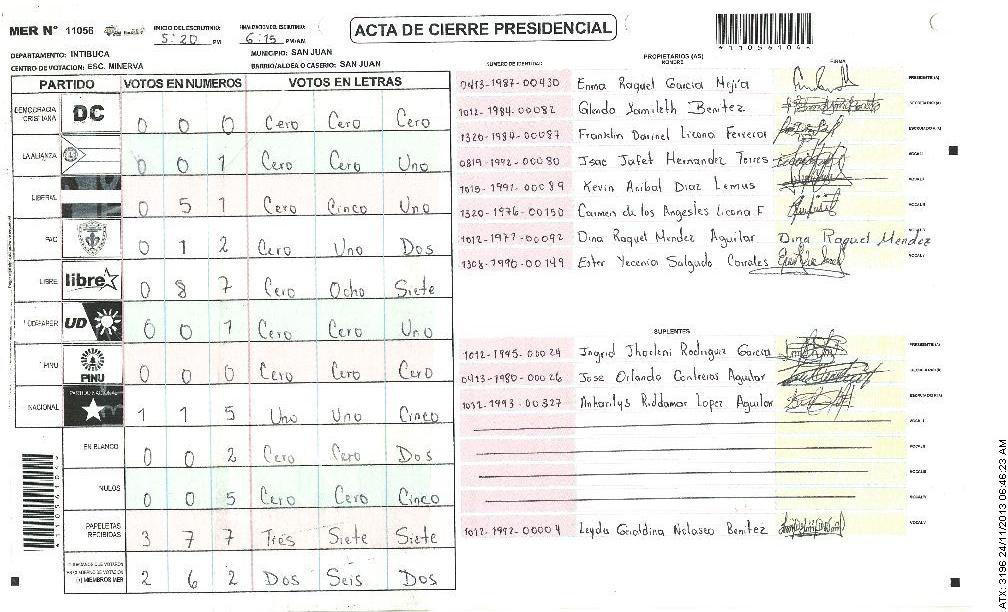 MER N° 11056 INICIO DEL ESCRUTINIO: 5:20 PM FINALIZACION DEL ESCRUTINIO: 6:15 PM/AM ACTA DE CIERRE PRESIDENCIAL
*1105610 4*
DEPARTAMENTO: INTIBUCA MUNICIPIO: SAN JUAN
CENTRO DE VOTACION: ESC. MINERVA BARRIO/ALDEA O CASERIO: SAN JUAN
PARTIDO VOTOS EN NUMEROS VOTOS EN LETRAS
DEMOCRACIA CRISTIANA DC 0 0 0 Cero Cero Cero
LA ALIANZA 0 0 1 Cero Cero Uno
LIBERAL 0 5 1 Cero Cinco Uno
PAC 0 1 2 Cero Uno Dos
LIBRE libre 0 8 7 Cero Ocho Siete
UD 0 0 1 Cero Cero Uno
PINU PINU 0 0 0 Cero Cero Cero
NACIONAL PARTIDO NACIONAL 1 1 5 Uno Uno Cinco
EN BLANCO 0 0 2 Cero Cero Dos
NULOS 0 0 5 Cero Cero Cinco
PAPELETAS RECIBIDAS 3 7 7 Tres Siete Siete
(+) MIEMBROS MER 2 6 2 Dos Seis Dos
NUMERO DE IDENTIDAD PROPIETARIOS (AS) NOMBRE FIRMA
0413-1987-00430 Enma Raquel Garcia Mejía PRESIDENTE (A)
1012-1984-00082 Glenda Yamileth Benitez SECRETARIO (A)
1320-1984-00087 Franklin Darinel Licona Ferrera ESCRUTADOR (A)
0819-1992-00080 Isac Jafet Hernandez Torres VOCAL I
1015-1991-00089 Kevin Anibal Diaz Lemus
1320-1976-00150 Carmen de los Angeles Licona F
1012-1977-00092 Dina Raquel Mendez Aguilar Dina Raquel Mendez
1308-1990-00149 Ester Yecenia Salgado Corrales
SUPLENTES
1012-1995-00024 Ingrid Jharleni Rodriguez Garcia PRESIDENTE (A)
0413-1980-00026 Jose Orlando Contreras Aguilar SECRETARIO (A)
1012-1993-00327 Anharilys Riddamar Lopez Aguilar ESCRUTADOR (A)
1012-1992-00004 Leyda Geraldina Nolasco Benitez
ATX: 3196 24/11/2013 06:46:23 AM